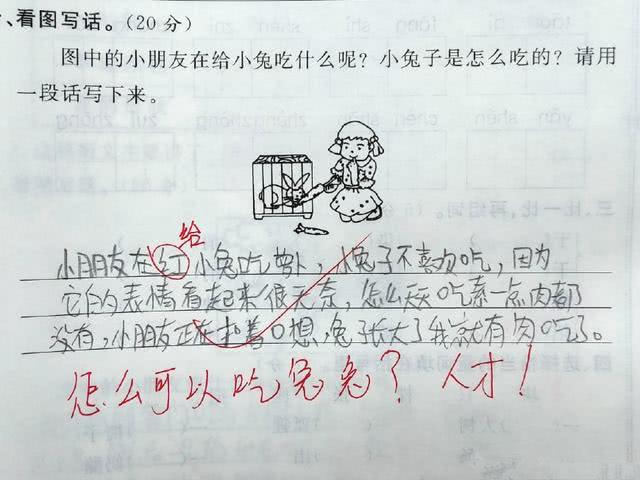 、看图写话。(20分)
图中的小朋友在给小兔吃什么呢？小兔子是怎么吃的？请用
一段话写下来。
给
小朋友在红小兔吃萝卜，小兔子不喜欢吃，因为
它的表情看起来很无奈，怎么天天吃素一点肉都
没有，小朋友正在想，兔子长大了我就有肉吃了。
怎么可以吃兔兔？人才！